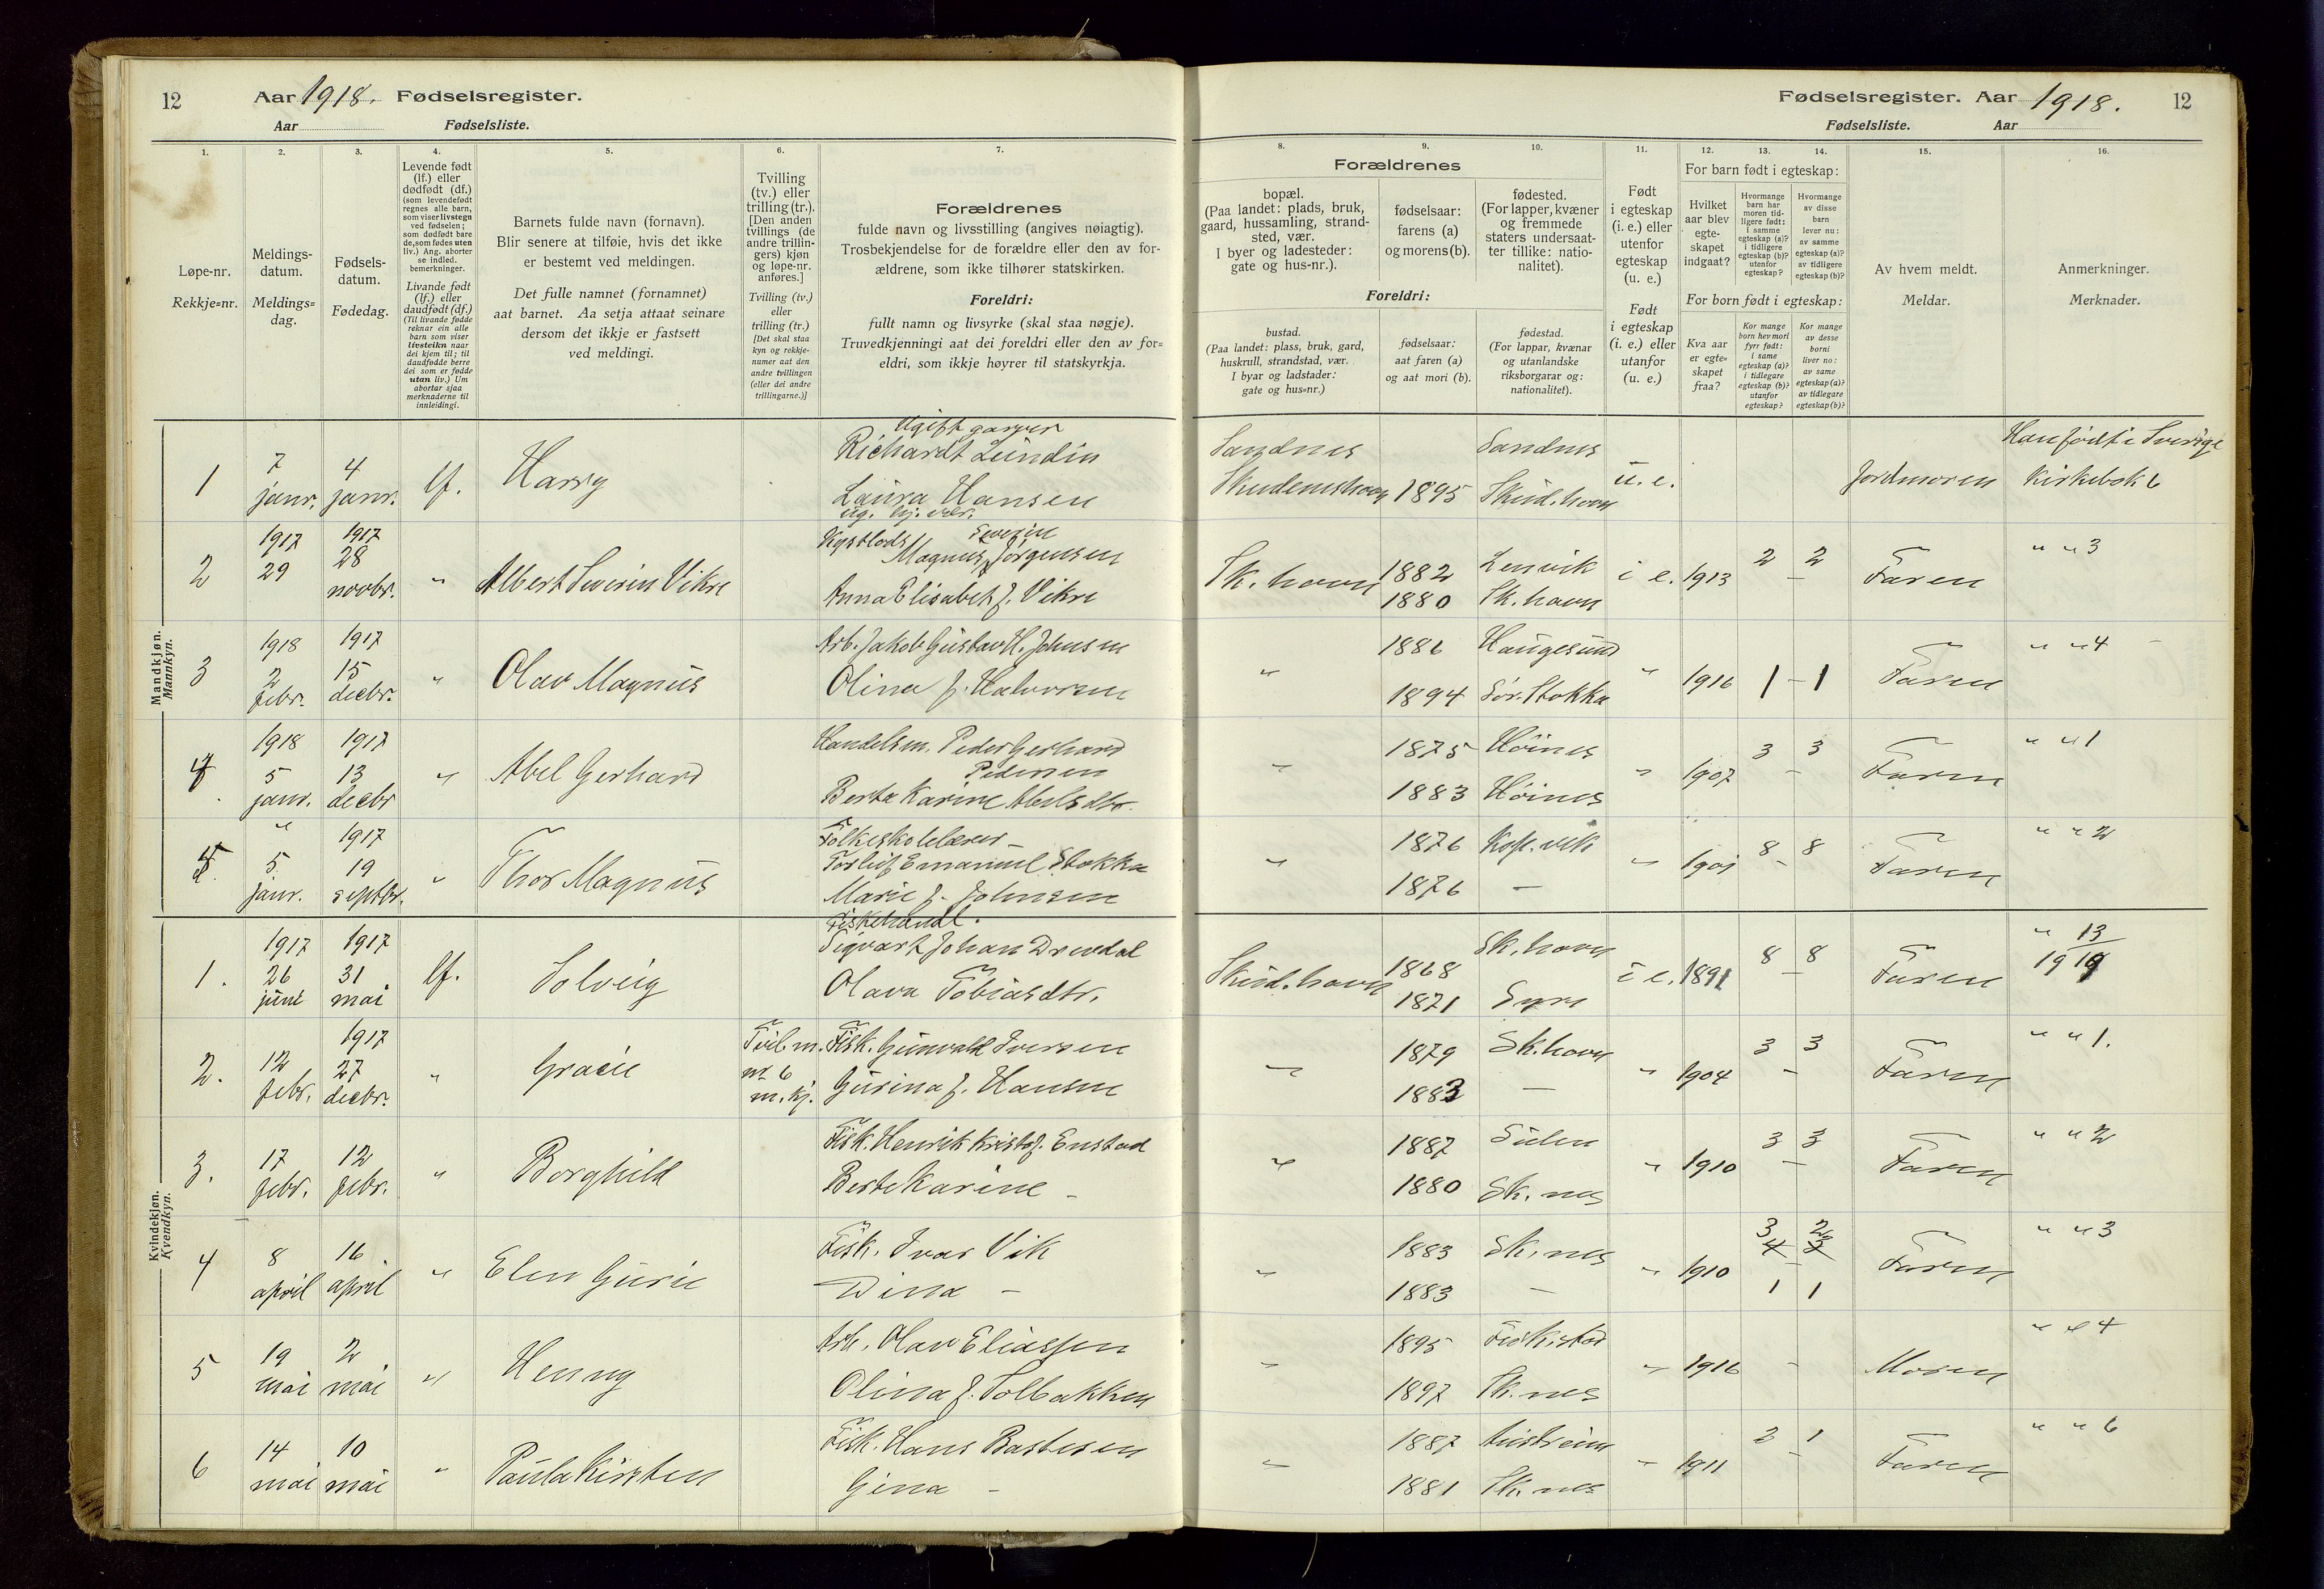 12 Aar 1918. Fødselsregister.
Aar Fødselsliste.
1. 2. 3. 4. 5. 6. 7.
Løpe-nr.
Rekkje=nr.
Meldings-
datum.
Meldings=
dag.
Fødsels-
datum.
Fødedag.
Levende født
(lf.) eller
dødfødt (df.)
(som levendefødt
regnes alle barn,
som viser livstegn
ved fødselen;
som dødfødt bare
de, som fødes uten
liv.) Ang. aborter
se indled.
bemerkninger.
Livande født
(lf.) eller
daudfødt (df.)
(Til livande fødde
reknar ein alle
barn som viser
livsteikn naar
dei kjem til; til
daudfødde berre
dei som er fødde
utan liv.) Um
abortar sjaa
merknaderne til
innleidingi.
Barnets fulde navn (fornavn).
Blir senere at tilføie, hvis det ikke
er bestemt ved meldingen.
Det fulle namnet (fornamnet)
aat barnet. Aa setja attaat seinare
dersom det ikkje er fastsett
ved meldingi.
Tvilling
(tv.) eller
trilling (tr.).
[Den anden
tvillings (de
andre trillin-
gers) kjøn
og løpe-nr.
anføres.]
Tvilling (tv.)
eller
trilling (tr.)
[Det skal staa
kyn og rekkje-
numer aat den
andre tvillingen
(eller dei andre
trillingarne.)]
Forældrenes
fulde navn og livsstilling (angives nøiagtig).
Trosbekjendelse for de forældre eller den av for-
ældrene, som ikke tilhører statskirken.
Foreldri:
fullt namn og livsyrke (skal staa nøgje).
Truvedkjenningi aat dei foreldri eller den av for=
eldri, som ikkje høyrer til statskyrkja.
Mandkjøn.
Mannkyn.
Ugift garver
1 7 janr. 4 janr. lf. Harry Richardt Lundin
Laura Hansen
ug.
2 1917 29 1917 28 novbr. " Albert Severin Vikre Severin
Magnus Jørgensen
Anna Elisabet f. Vikre
3 1918 2 febr. 1917 15 decbr. " Olav Magnus Arb. Jakob Gustav H. Johnsen
Olina f. Halvorsen
4 1918 5 janr. 1917 13 decbr " Abel Gerhard Handelsm. Peder Gerhard
Pedersen
Berta Karine Abelsdtr.
5. " 5. janr. 1917 19 septbr. " Thor Magnus Folkeskolelærer
Torleif Emanuel Stokka
Marie f. Johnsen
Kvindekjøn.
Kvendkyn.
1. 1917 26 juni 1917 31 mai lf. Solveig Fiskehandl.
Sigvart Johan Drevdal
Olava Tobiasdtr.
2. 12 febr. 1917 27 decbr. " Gracie Tvil. m. nr 6 m. kj. Fisk. Gunvald Iversen
Gurina f. Hansen
3. 17 febr. 12 febr. " Borghild Fisk. Henrik Kristof. Enstad
Berte Karine –
4 8 april 16 april " Elen Gurie Fisk. Ivar Vik
Dina –
5 19 mai 2 mai " Henny Arb. Olav Eliassen
Olina f. Tolbakken
6 14 mai 10 mai " Paula Kirsten Fisk. Hans Bastesen
Gina –
Fødselsregister. Aar 1918. 12
Fødselsliste. Aar
8. 9. 10. 11. 12. 13. 14. 15. 16.
Forældrenes
bopæl.
(Paa landet: plads, bruk,
gaard, hussamling, strand-
sted, vær.
I byer og ladesteder:
gate og hus-nr.).
fødselsaar:
farens (a)
og morens (b).
fødested.
(For lapper, kvæner
og fremmede
staters undersaat-
ter tillike: natio-
nalitet).
Foreldri:
bustad.
(Paa landet: plass, bruk, gard,
huskrull, strandstad, vær.
I byar og ladstader:
gate og hus=nr.)
fødselsaar:
aat faren (a)
og aat mori (b).
fødestad.
(For lappar, kvænar
og utanlandske
riksborgarar og:
nationalitet).
Født
i egteskap
(i. e.) eller
utenfor
egteskap
(u. e.)
Født
i egteskap
(i. e.) eller
utanfor
(u. e.)
For barn født i egteskap:
Hvilket
aar blev
egte-
skapet
indgaat?
Hvormange
barn har
moren tid-
ligere født:
i samme
egteskap (a)?
i tidligere
egteskap (b)?
utenfor
egteskap?
Hvormange
av disse
barn
lever nu:
av samme
egteskap (a)?
av tidligere
egteskap (b)?
For born født i egteskap:
Kva aar
er egte=
skapet
fraa?
Kor mange
born hev mori
fyrr født:
i same
egteskap (a)?
i tidlegare
egteskap (b)?
utanfor
egteskap?
Kor mange
av desse
borni
liver no:
av same
egteskap (a)?
av tidlegare
egteskap (b)?
Av hvem meldt.
Meldar.
Anmerkninger.
Merknader.
Sandnes Sandnes Han født i Sverige
Skudeneshavn 1895 Skud. havn u. e. Jordmoren Kirkebok 6
Sk. havn 1882 Lenvik i e. 1913 2 – 2 Faren " " 3
1880 Sk. havn
" 1886 Haugesund " 1916 1 – 1 Faren " " 4
1894 Sør. Stokka
" 1875 Høines " 1907 3 – 3 Faren " " 1
1883 Høines
" 1876 Kop. vik " 1901 8 – 8 Faren " " 2
1876 –
Skud. havn 1868 Sk. havn i e. 1891 8 – 8 Faren " 13
1871 Syre 1919
" 1879 Sk. havn " 1904 3 – 3 Faren " " 1.
1883 –
" 1887 Sulen " 1910 3 – 3 Faren " " 2
1880 Sk. nes
" 1883 Sk. nes " 1910 3 2 Faren " " 3
1883 – 1 1
" 1895 " 1916 – Moren " " 4
1897 Sk. nes
" 1887 " 1911 2 – 1 Faren " " 6
1881 Sk. nes